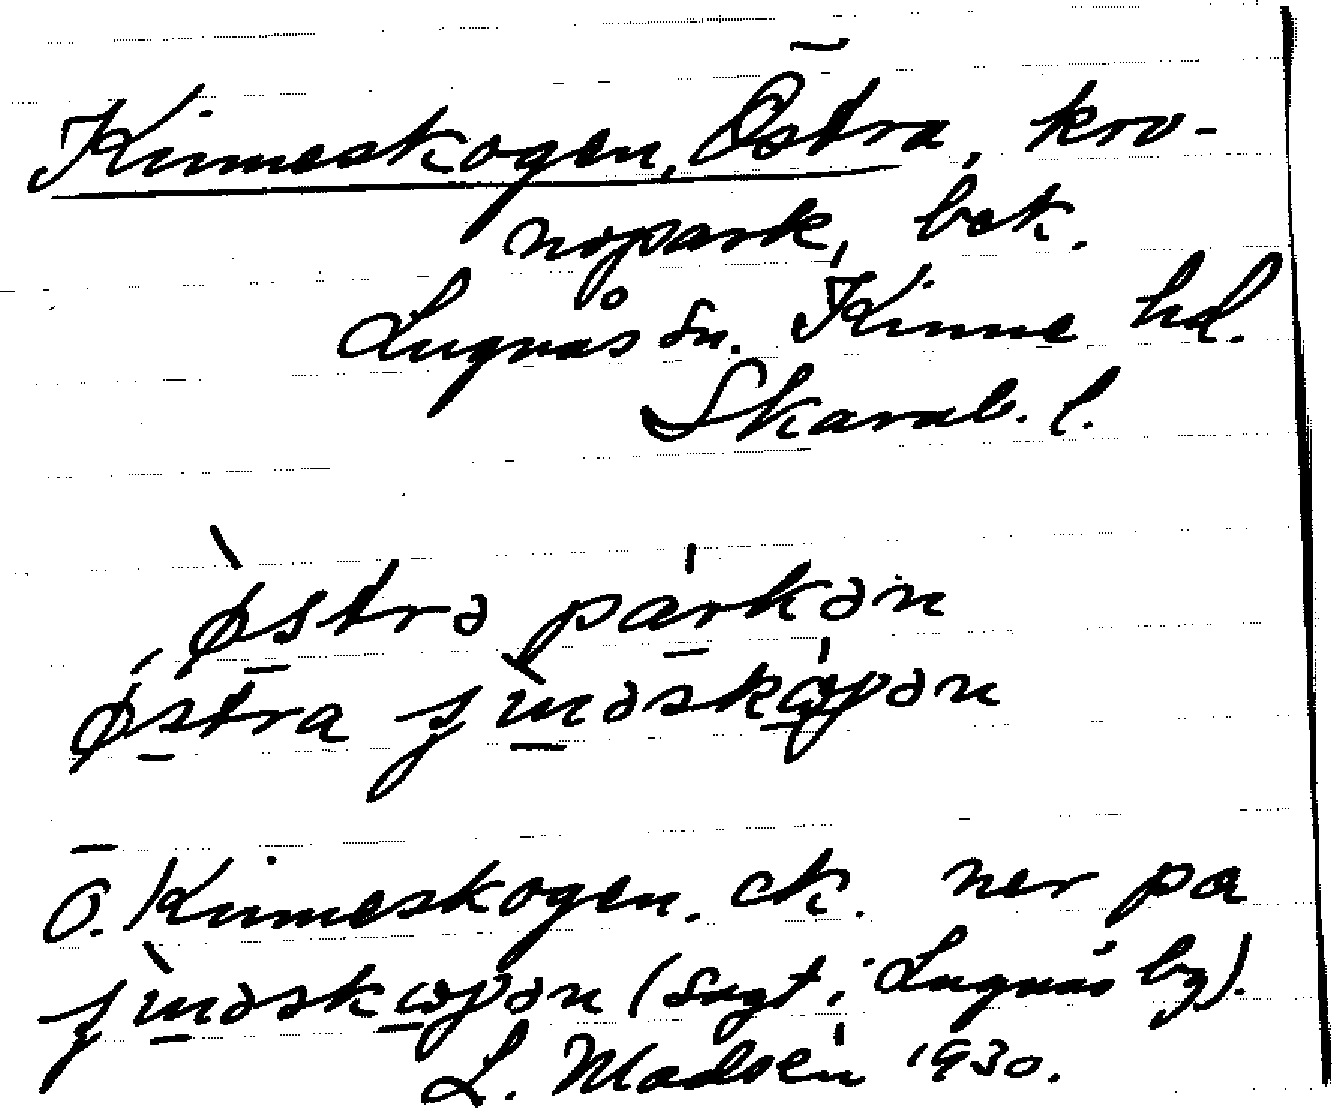 Kinneskogen, Östra, kro-
nopark, bek.
Lugnås sn. Kinne hd.
Skarab. l.
østrə parkən
østra ʃinəskoɡən
Ö. Kinneskogen. ek. ner på
ʃinəskoɡən (sagt i Lugnås by).
L. Madsén 1930.